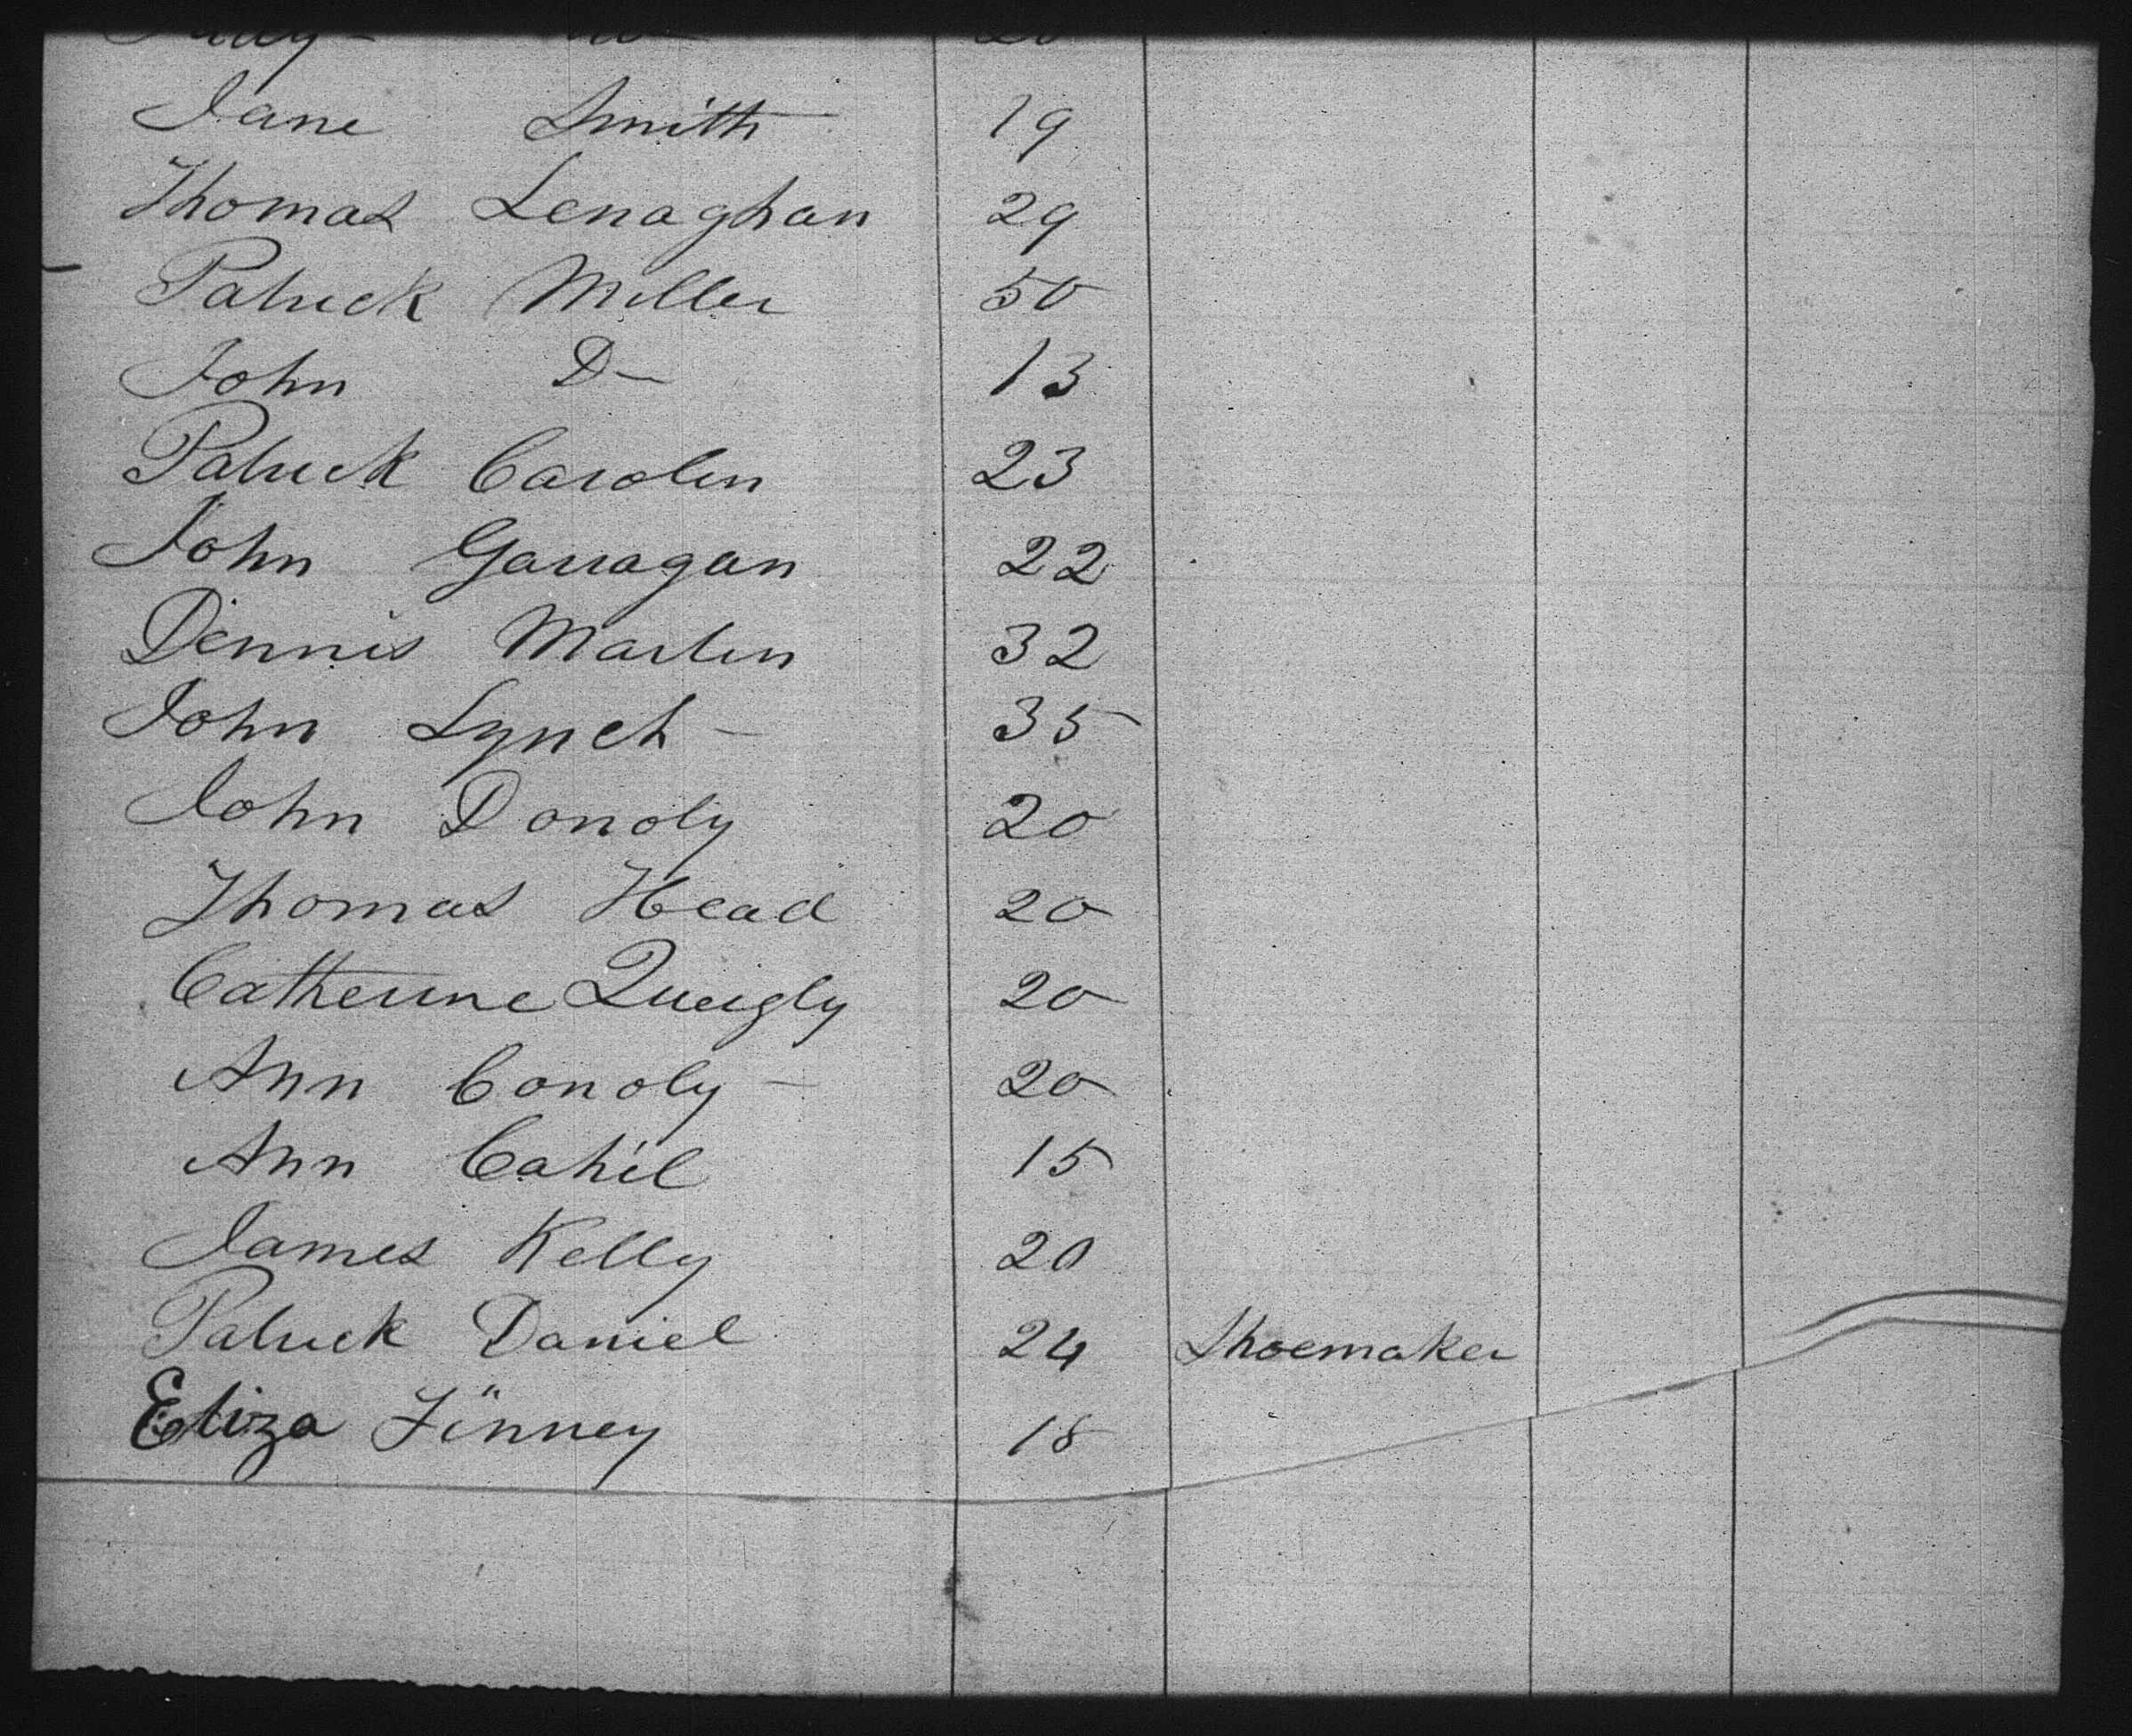 Jane Smith 19
Thomas Lenaghan 29
Patrick Miller 50
John D— 13
Patrick Carolin 23
John Garragan 22
Dennis Martin 32
John Lynch — 35
John Donoly 20
Thomas Head 20
Catherine Queigly 20
Ann Conoly — 20
Ann Cahil 15
James Kelly 20
Patrick Daniel 24 Shoemaker
Eliza Finney 18